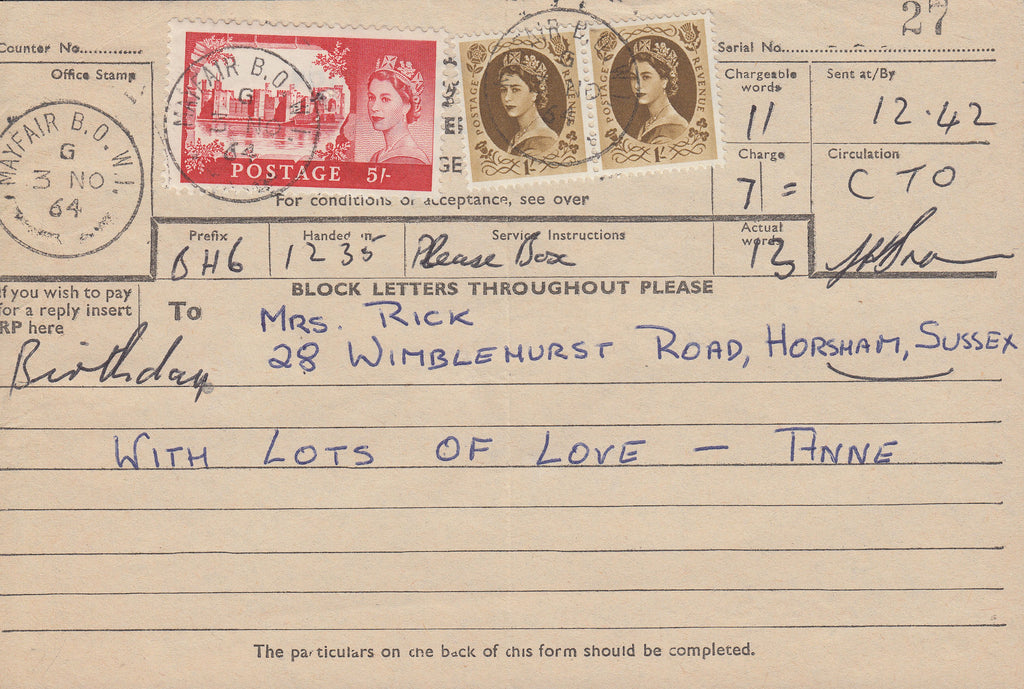 27
Counter No.............
Serial No.
Office Stamp
MAYFAIR B.O.W.1.
G
3 NO
64
MAYFAIR B.O.W.1.
G
64
POSTAGE 5/-
POSTAGE REVENUE
1/-
POSTAGE REVENUE
1/-
Chargeable words
11
Sent at/By
12.42
Charge
7/=
Circulation
CTO
For conditions of acceptance, see over
Prefix
BH6
Handed in
1235
Service Instructions
Please Box
Actual words
13
BLOCK LETTERS THROUGHOUT PLEASE
If you wish to pay
for a reply insert
RP here
Birthday
To
MRS. RICK
28 WIMBLEHURST ROAD, HORSHAM, SUSSEX
WITH LOTS OF LOVE – ANNE
The particulars on the back of this form should be completed.